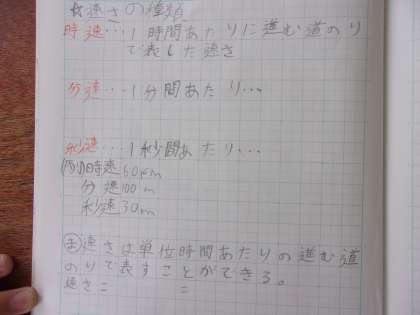 ☆速さの種類
時速…1時間あたりに進む道のり
で表した速さ
分速…1分間あたり…
秒速…1秒間あたり…
(例)時速60km
分速100m
秒速30m
ま速さは単位時間あたりの進む道
のりで表すことができる。
速さ=　　=